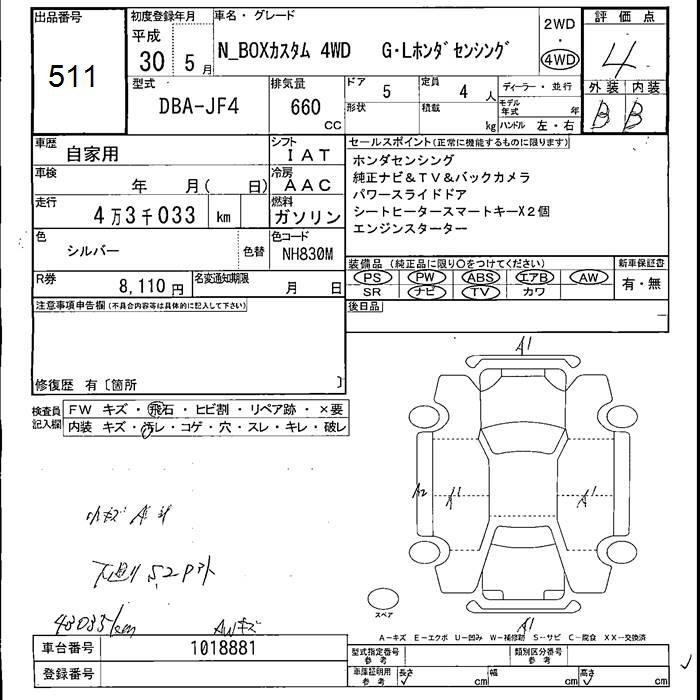 出品番号
511
初度登録年月
平成
30 5 月
車名・グレード
N_BOXカスタム 4WD G・Lホンダセンシング
2WD
・
4WD
評価点
4
外装 内装
B B
型式
DBA-JF4
排気量
660
CC
ドア
5
定員
4 人
形状
積載
kg
ディーラー・並行
モデル年式 年
ハンドル 左・右
車歴
自家用
シフト
IAT
車検
年 月( 日)
冷房
AAC
走行
4万3千033 km
燃料
ガソリン
色
シルバー
色替
色コード
NH830M
R券
8,110 円
名変通知期限
月 日
セールスポイント(正常に機能するものに限ります)
ホンダセンシング
純正ナビ&TV&バックカメラ
パワースライドドア
シートヒータースマートキーX2個
エンジンスターター
装備品(純正品に限り○をつけてください)
PS PW ABS エアB AW
SR ナビ TV カワ
新車保証書
有・無
後日品
注意事項申告欄(不具合内容等は具体的に記入して下さい)
修復歴 有〔箇所 〕
検査員記入欄
FW キズ・飛石・ヒビ割・リペア跡・×要
内装 キズ・汚レ・コゲ・穴・スレ・キレ・破レ
A1
A2 A1 A1
小キズ A
下廻り S2
43033km
AWキズ
スペア
A1
A-キズ E-エクボ U-凹み W-補修跡 S-サビ C-腐食 XX-交換済
車台番号
1018881
登録番号
型式指定番号
参考
類別区分番号
参考
車庫証明用
参考
長さ cm
幅 cm
高さ cm